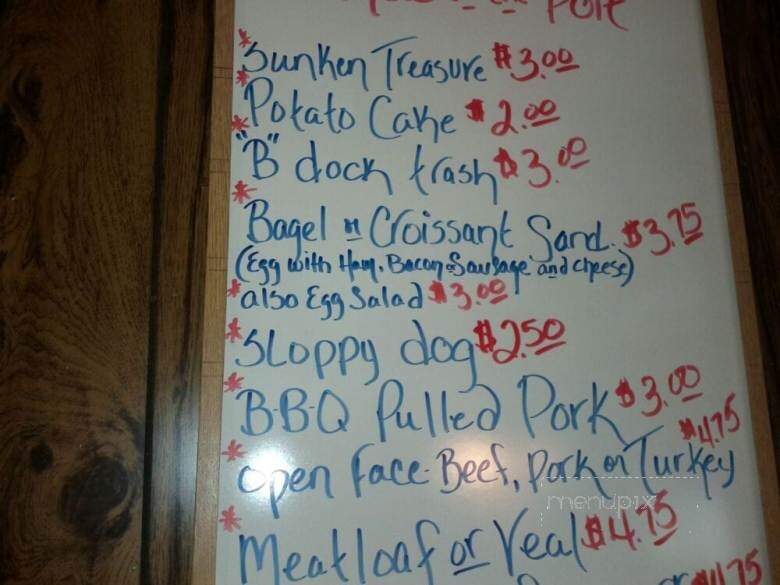 Pole
*Sunken Treasure $3.00
*Potato Cake $2.00
*"B" dock trash $3.00
*Bagel or Croissant Sand. $3.75
(Egg with Ham, Bacon or Sausage and cheese)
*also Egg Salad $3.00
*Sloppy dog $2.50
*B-B-Q Pulled Pork $3.00
*open face Beef, Pork or Turkey $4.75
menupix
*Meatloaf or Veal $4.75
$4.75